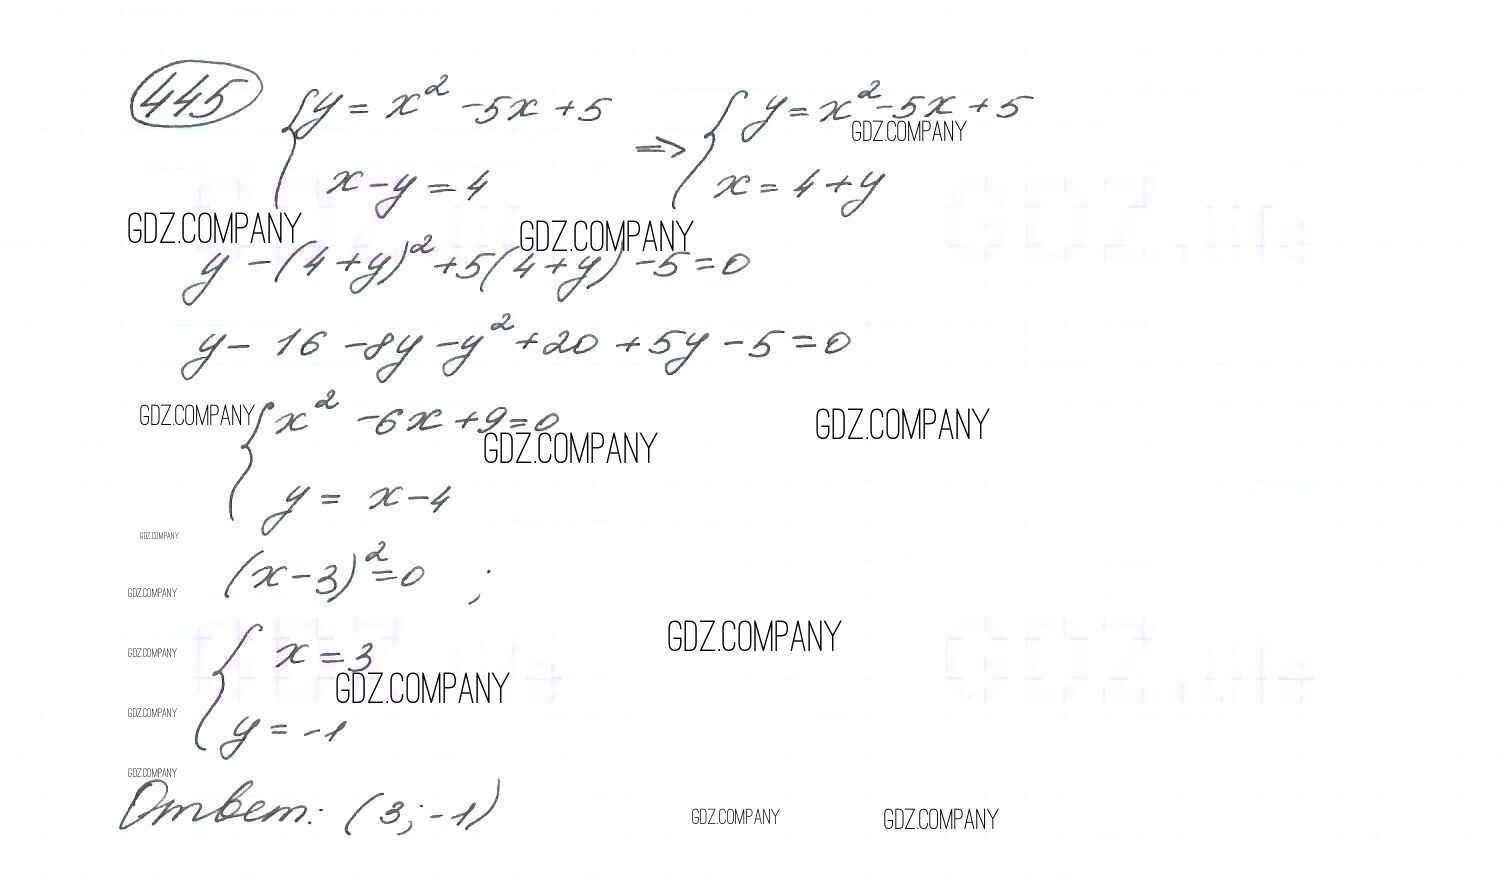 445 { y = x² - 5x + 5 => { y = x² - 5x + 5
GDZ.COMPANY
x - y = 4 x = 4 + y
GDZ.COMPANY GDZ.COMPANY
y - (4 + y)² + 5(4 + y) - 5 = 0
y - 16 - 8y - y² + 20 + 5y - 5 = 0
GDZ.COMPANY { x² - 6x + 9 = 0 GDZ.COMPANY
GDZ.COMPANY
y = x - 4
GDZ.COMPANY
(x - 3)² = 0 ;
GDZ.COMPANY
GDZ.COMPANY
{ x = 3
GDZ.COMPANY
GDZ.COMPANY
GDZ.COMPANY
y = -1
GDZ.COMPANY
Ответ: (3; -1)
GDZ.COMPANY GDZ.COMPANY